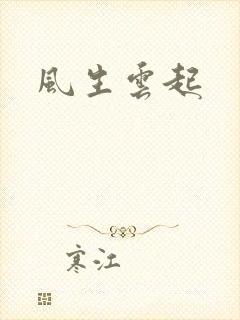 風生雲起
寒江